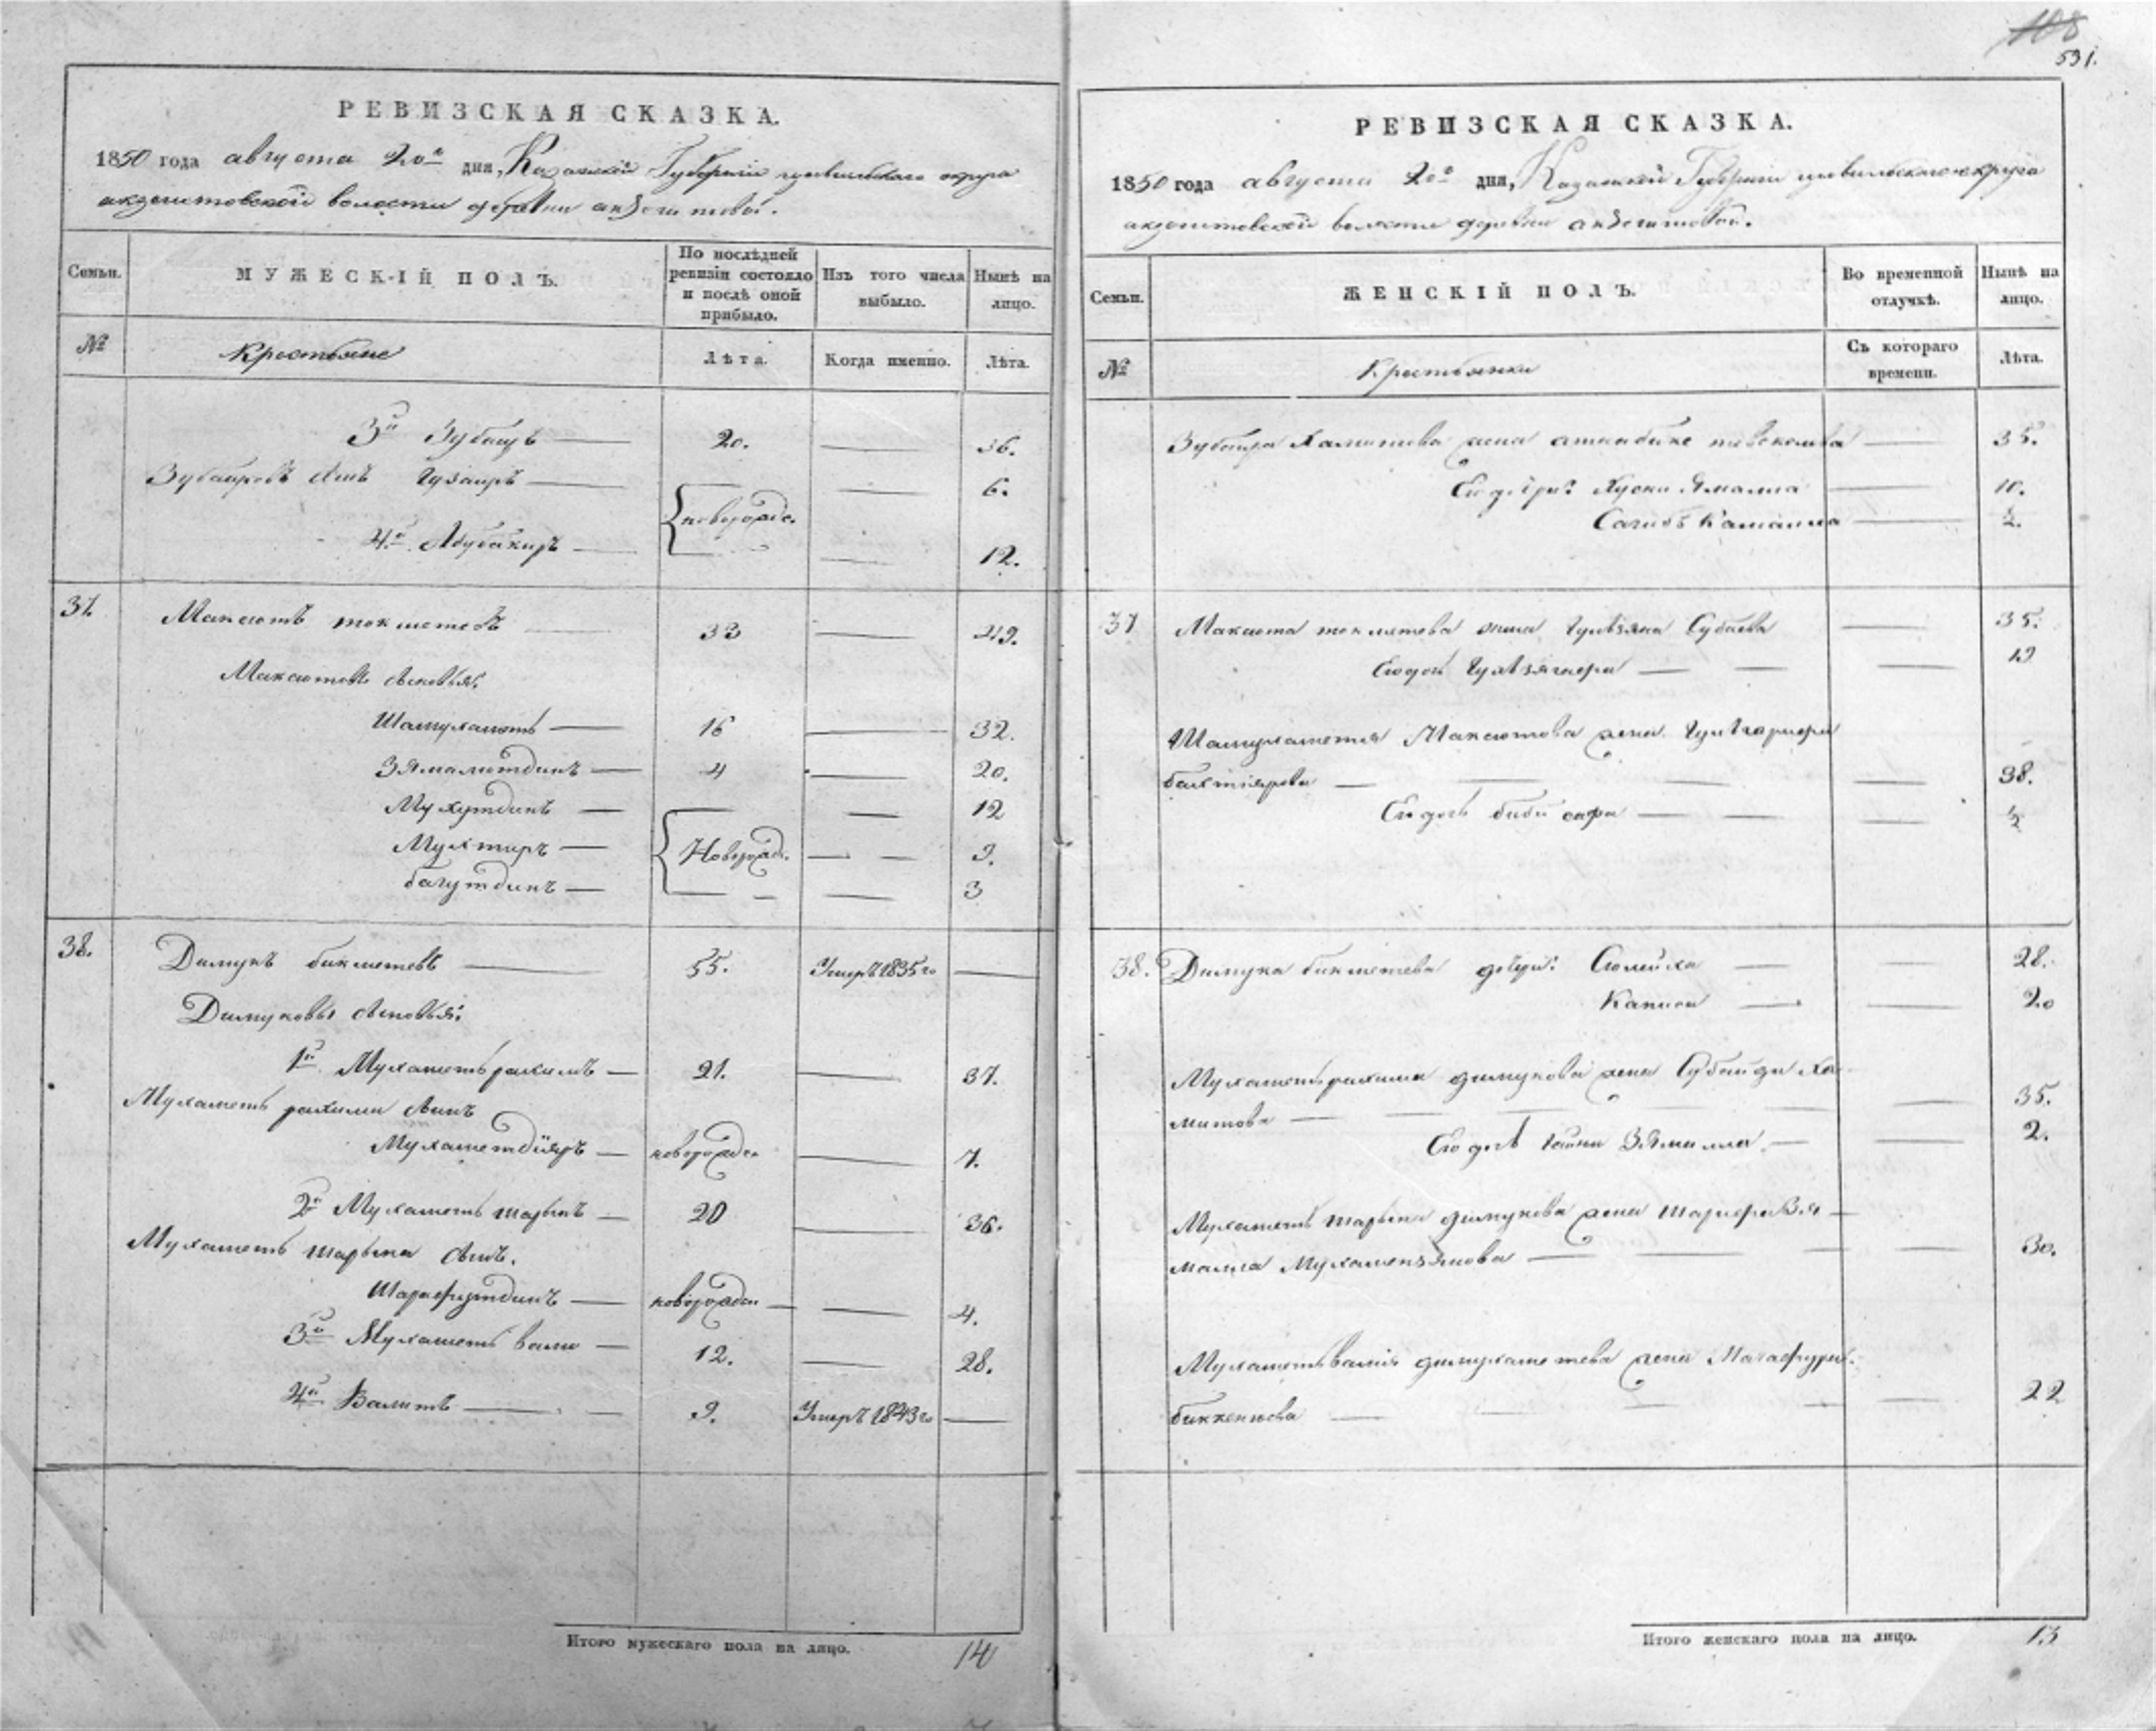 108
531.
РЕВИЗСКАЯ СКАЗКА.
1850 года августа 20го дня, Казанской Губерніи цывильскаго округа
акзегитовской волости деревни акзегитовой.
Семьи.
МУЖЕСКІЙ ПОЛЪ.
По послѣдней
ревизіи состояло
и послѣ оной
прибыло.
Изъ того числа
выбыло.
Нынѣ на
лицо.
№
Крестьяне
Лѣта.
Когда именно.
Лѣта.
3й Зубаиръ — 20. — 36.
Зубаировъ сынъ Гузаиръ — 6.
новорожде.
4й Абубакиръ — 12.
37. Максютъ токметевъ — 33 — 49.
Максютовы сыновья:
Шамухаметъ — 16 — 32.
Зямалютдинъ — 4 — 20.
Мухутдинъ — 12
Мухтиръ — Новорожд. — 9.
багутдинъ — 3
38. Димукъ бикметевъ — 55. Умеръ 1835го —
Димуковы сыновья:
1й Мухаметьрахимъ — 21. — 37.
Мухаметь рахима сынъ
Мухаметдіяръ — новорожде — 7.
2й Мухаметь шарыпъ — 20 — 36.
Мухаметь шарыпа сынъ.
Шарафутдинъ — новорожден — 4.
3й Мухаметь вали — 12. — 28.
4й Валитъ — 9. Умеръ 1843го —
Итого мужескаго пола на лицо. 14
РЕВИЗСКАЯ СКАЗКА.
1850 года августа 20го дня, Казанской Губерніи цывильскаго округа
акзегитовской волости деревни акзегитовой.
Семьи.
ЖЕНСКІЙ ПОЛЪ.
Во временной
отлучкѣ.
Нынѣ на
лицо.
№
Крестьянки
Съ котораго
времени.
Лѣта.
Зубаира Халитова жена — 35.
Ея дочри: Хусни Ямалла — 10.
Сагибъ Камалла — ½.
37 Максюта токметева жена Гулзяна Субаева — 35.
Ея дочь — 19
Шамухаметя Максютова жена
бахтіярова — 38.
Ея дочь биби сафа — ½
38. Димука бикметева дочри: Сюлейха — 28.
20
Мухаметьрахима димукова жена Субайда Ха-
митова — 35.
Ея дочь Зямилла — 2.
Мухаметь шарыпа димукова жена шарифзя-
малла Мухаметзянова — 30.
Мухаметьвалія димухаметева жена
биккентова — 22
Итого женскаго пола на лицо. 13